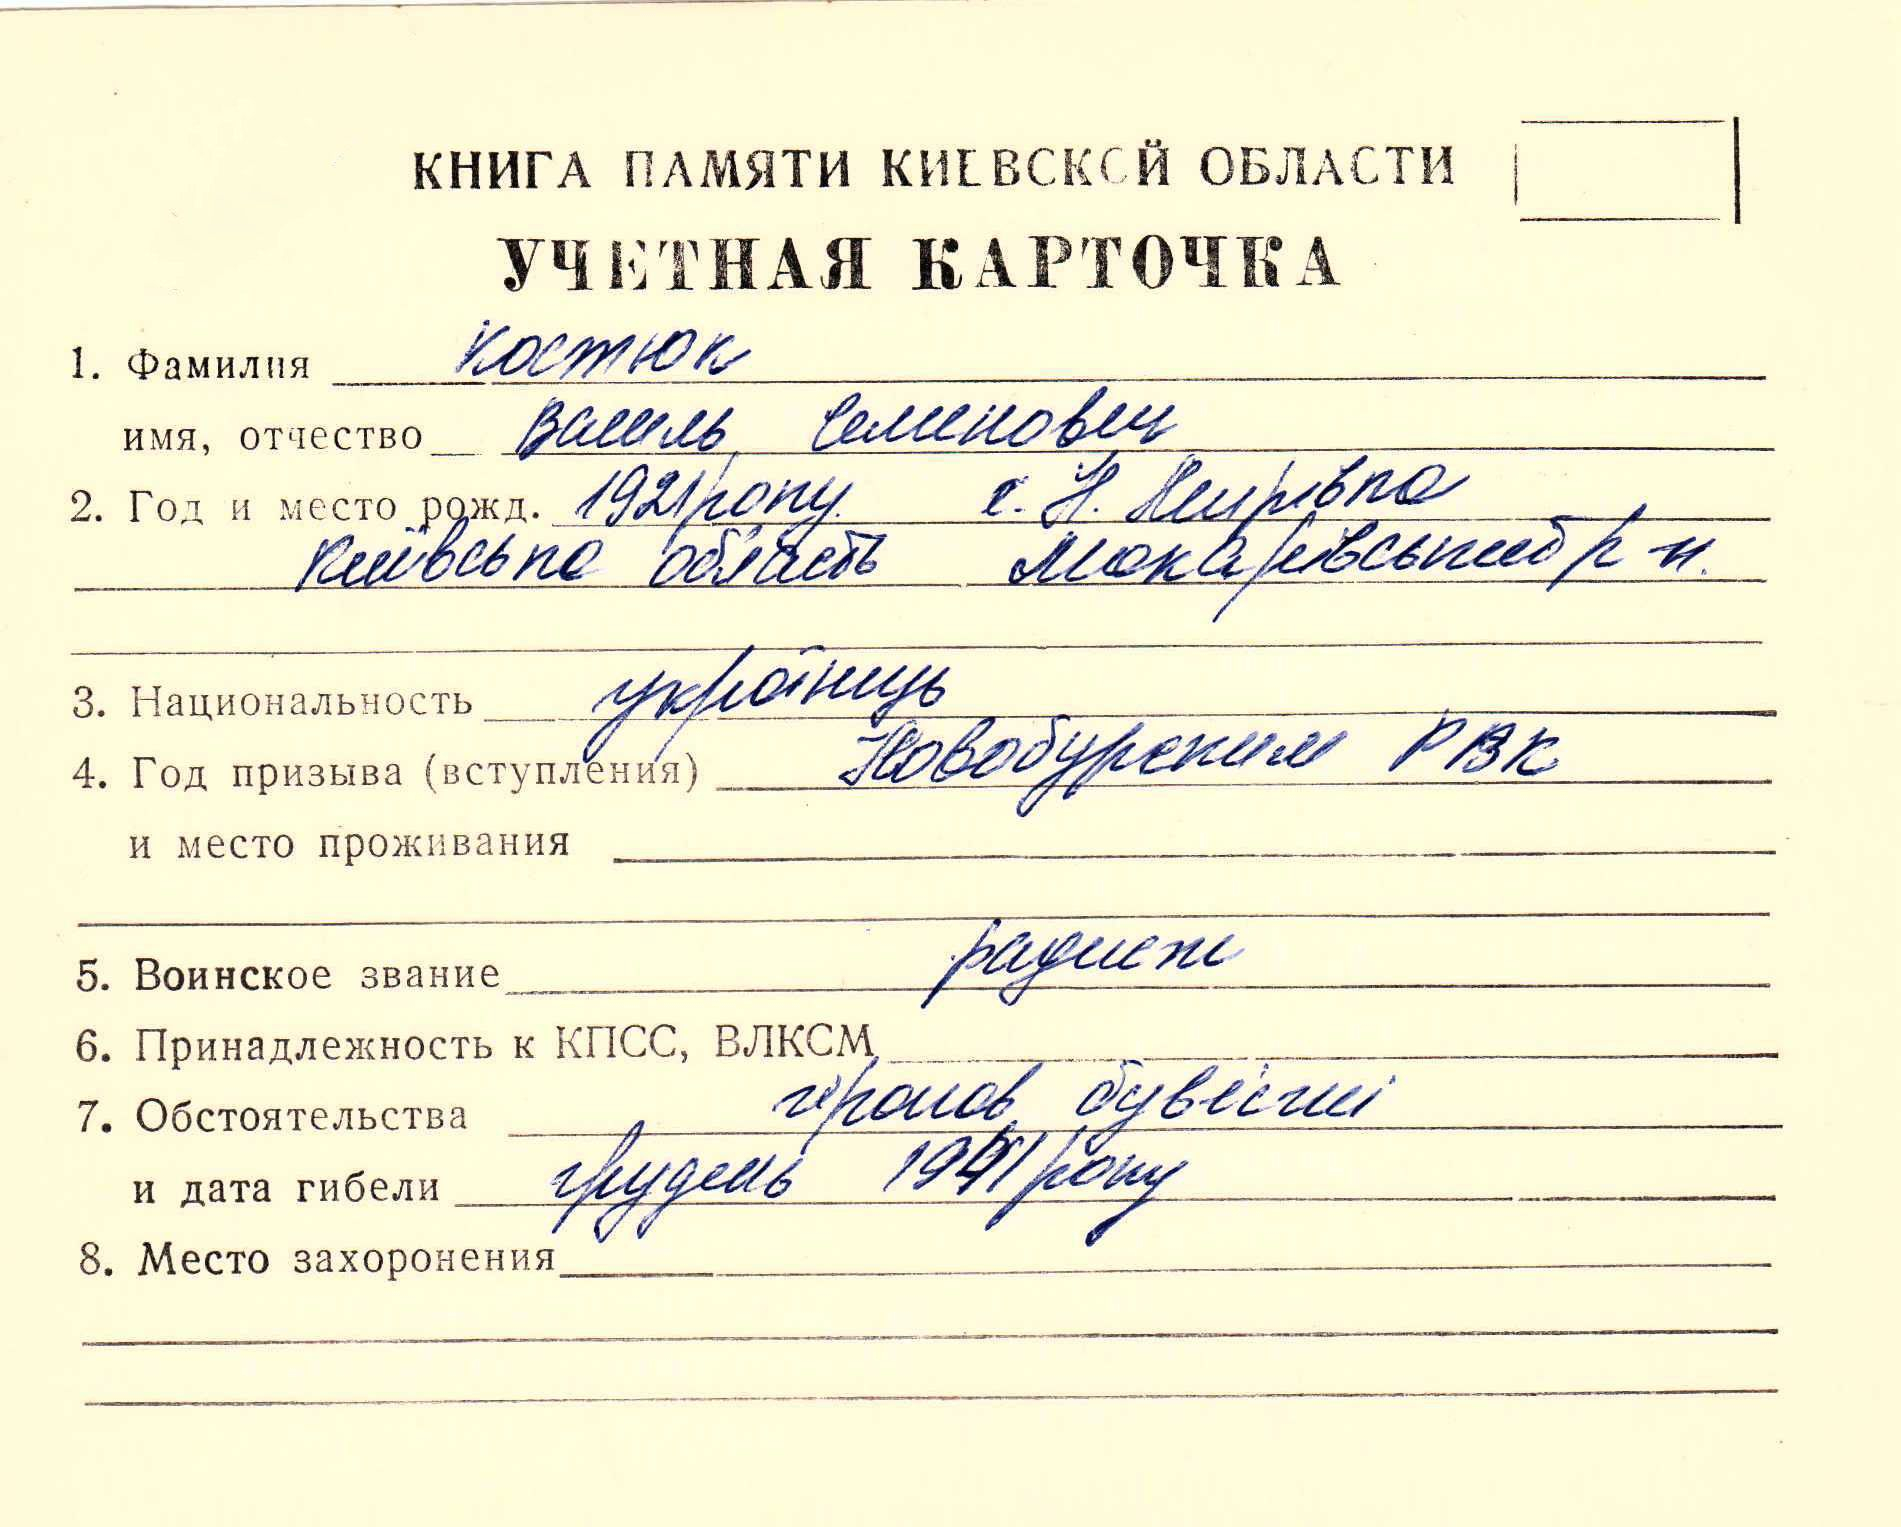 КНИГА ПАМЯТИ КИЕВСКОЙ ОБЛАСТИ
УЧЕТНАЯ КАРТОЧКА
1. Фамилия Костюк
имя, отчество Василь Семенович
2. Год и место рожд. 1921 року. с. Н. Мирівка
Київська область Макарівський р-н.
3. Национальность українець
4. Год призыва (вступления) РВК
и место проживания
5. Воинское звание радист
6. Принадлежность к КПСС, ВЛКСМ
7. Обстоятельства пропав
и дата гибели грудень 1941 року
8. Место захоронения